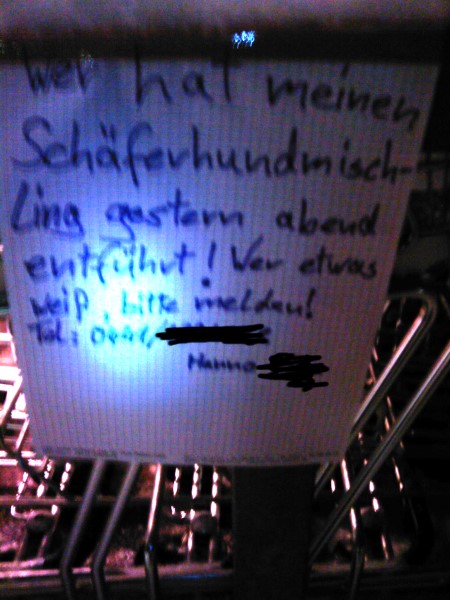 Wer hat meinen
Schäferhundmisch-
Ling gestern abend
entführt! Wer etwas
weiß, bitte melden!
Tel.:
Hanno